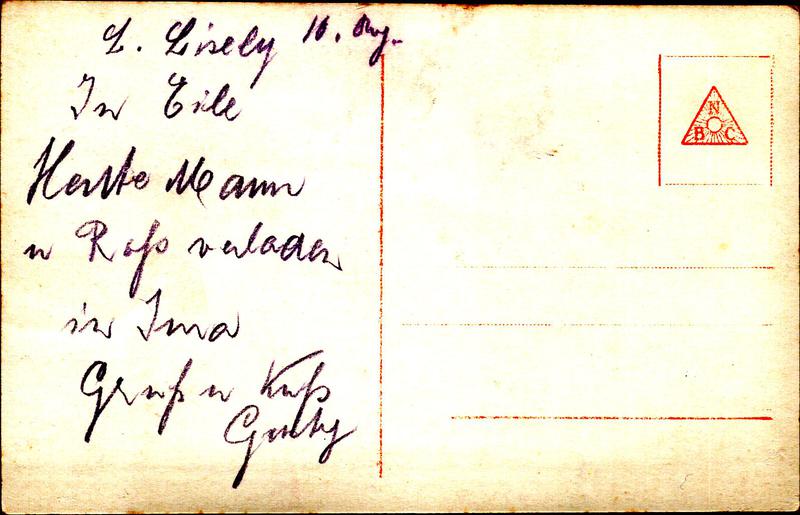 L. Lisely 10. Aug.
In Eile
Heute Mann
u Roß verladen
in Jma
Gruß u Kuß
Gusty
N
B C